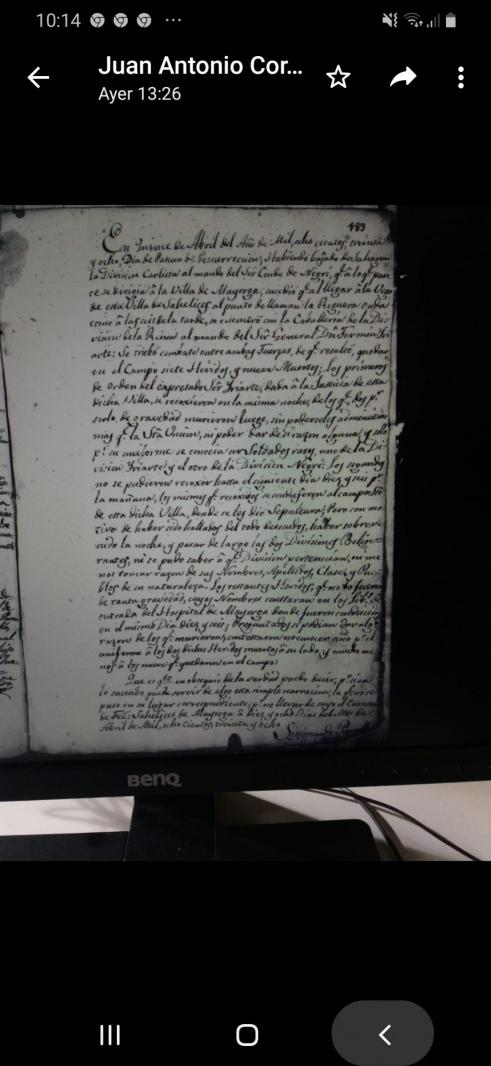 10:14
Juan Antonio Cor...
Ayer 13:26
189
En quince de Abril del Año de Mil, ocho cientos, treinta
y ocho, Dia de Pascua de Resurrección, Habiendo bajado de Sahagun
la Division Carlista al mando del Sor Conde de Negri, qe. a lo qe. pare
ce se dirigia â la Villa de Mayorga, sucedio qe. al llegar â la Vega
de esta Villa de Sahelices al punto de llaman la Reguera onda
como â las seis de la tarde, se encontró con la Caballeria de la Di-
vision de la Reina al mando del Sor General Dn Fermin Yri
arte: Se trabó combate entre ambas fuerzas, de qe. resultó, quedar
en el Campo siete Heridos, y nueve Muertos; los primeros
de orden del expresado Sor Yriarte, dada â la Justicia de esta
dicha Villa, se recoxieron en la misma noche, de los qe. dos pr.
su de gravedad murieron luego, sin poderseles administrar
mas qe. la Sta. Uncion, ni poder dar de si razon alguna, y solo
pr. su uniforme se conocia ser Soldados rasos, uno de la Di-
vision Yriarte y el otro de la Division Negri: Los segundos
no se pudieron recoxer hasta el siguiente dia diez y seis pr.
la mañana, los mismos qe. recoxidos se condujeron al campo Sto.
de esta dicha Villa, donde se les dio Sepultura; Pero con mo-
tivo de haber sido hallados del todo desnudos, haber sobreve
nido la noche, y pasar de largo las dos Divisiones Belige-
rantes, ni se pudo saber â qe. Division pertenecian, ni me
nos tomar razon de sus Nombres, Apellidos, Clases, y Pue-
blos de su naturaleza. Los restantes Heridos, qe. no fueron
de tanta gravedad, cuyos Nombres constaran en los de
entrada del Hospital de Mayorga donde fueron conducidos
en el mismo Dia diez, y seis; Preguntados si podian dar alguna
razon de los qe. murieron, contestaron no conocer, sino pr. el
uniforme â los dos dichos Heridos muertos â su lado, y mucho me
nos â los nueve qe. quedaron en el campo:
Que es qto. en obsequio de la verdad puedo decir, pr. si en
lo sucesibo puede servir de algo esta simple narracion; la qe. no se
puso en su lugar correspondiente, pr. no llevar de suyo el Caracter
de Fee. Sahelices de Mayorga â diez, y ocho Dias del Mes de
Abril de Mil, ocho cientos, treinta y ocho
BenQ